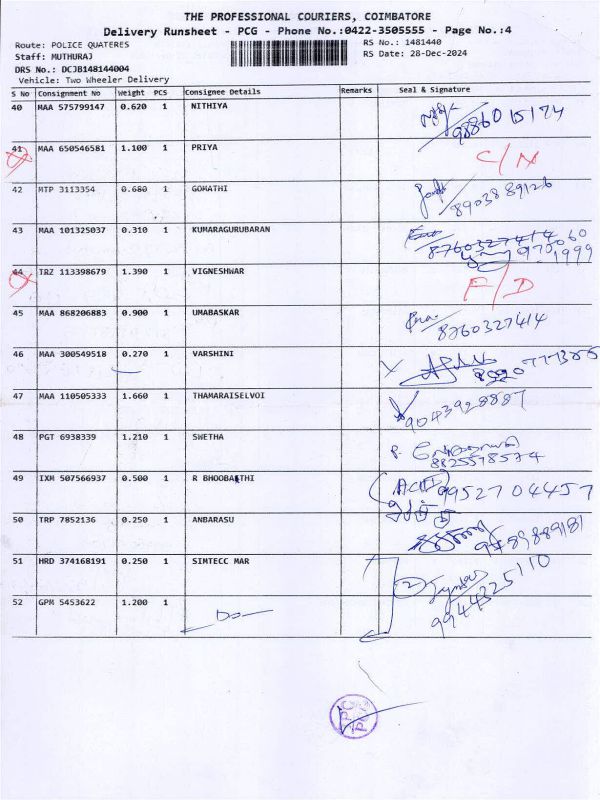 THE PROFESSIONAL COURIERS, COIMBATORE
Delivery Runsheet - PCG - Phone No.:0422-3505555 - Page No.:4
Route: POLICE QUATERES RS No.: 1481440
Staff: MUTHURAJ RS Date: 28-Dec-2024
DRS No.: DCJB148144004
Vehicle: Two Wheeler Delivery
S No Consignment No Weight PCS Consignee Details Remarks Seal & Signature
40 MAA 575799147 0.620 1 NITHIYA
9886015174
41 MAA 650546581 1.100 1 PRIYA C/N
42 MTP 3113354 0.680 1 GOMATHI
8903889126
43 MAA 101325037 0.310 1 KUMARAGURUBARAN
8760327414
44 TRZ 113398679 1.390 1 VIGNESHWAR F/D
45 MAA 868206883 0.900 1 UMABASKAR
8760327414
46 MAA 300549518 0.270 1 VARSHINI
47 MAA 110505333 1.660 1 THAMARAISELVOI
9043928887
48 PGT 6938339 1.210 1 SWETHA
8825578574
49 IXM 507566937 0.500 1 R BHOOBATHI
9952704457
50 TRP 7852136 0.250 1 ANBARASU
9489889181
51 HRD 374168191 0.250 1 SIMTECC MAR
2
9944325110
52 GPM 5453622 1.200 1 Do